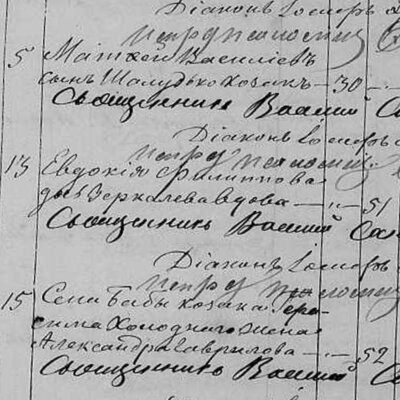 Діаконъ Іосифъ
5 Матѳей Василіевъ
сынъ Шалудько козакъ — 30 —
Священникъ Василій
Діаконъ Іосифъ
13 Евдокія Филиппова
Зеркалева вдова — „ — 51
Священникъ Василій
Діаконъ Іосифъ
15 Села Бабы козака Гера-
сима Холоднаго жена
Александра Гаврилова — „ — 52
Священникъ Василій